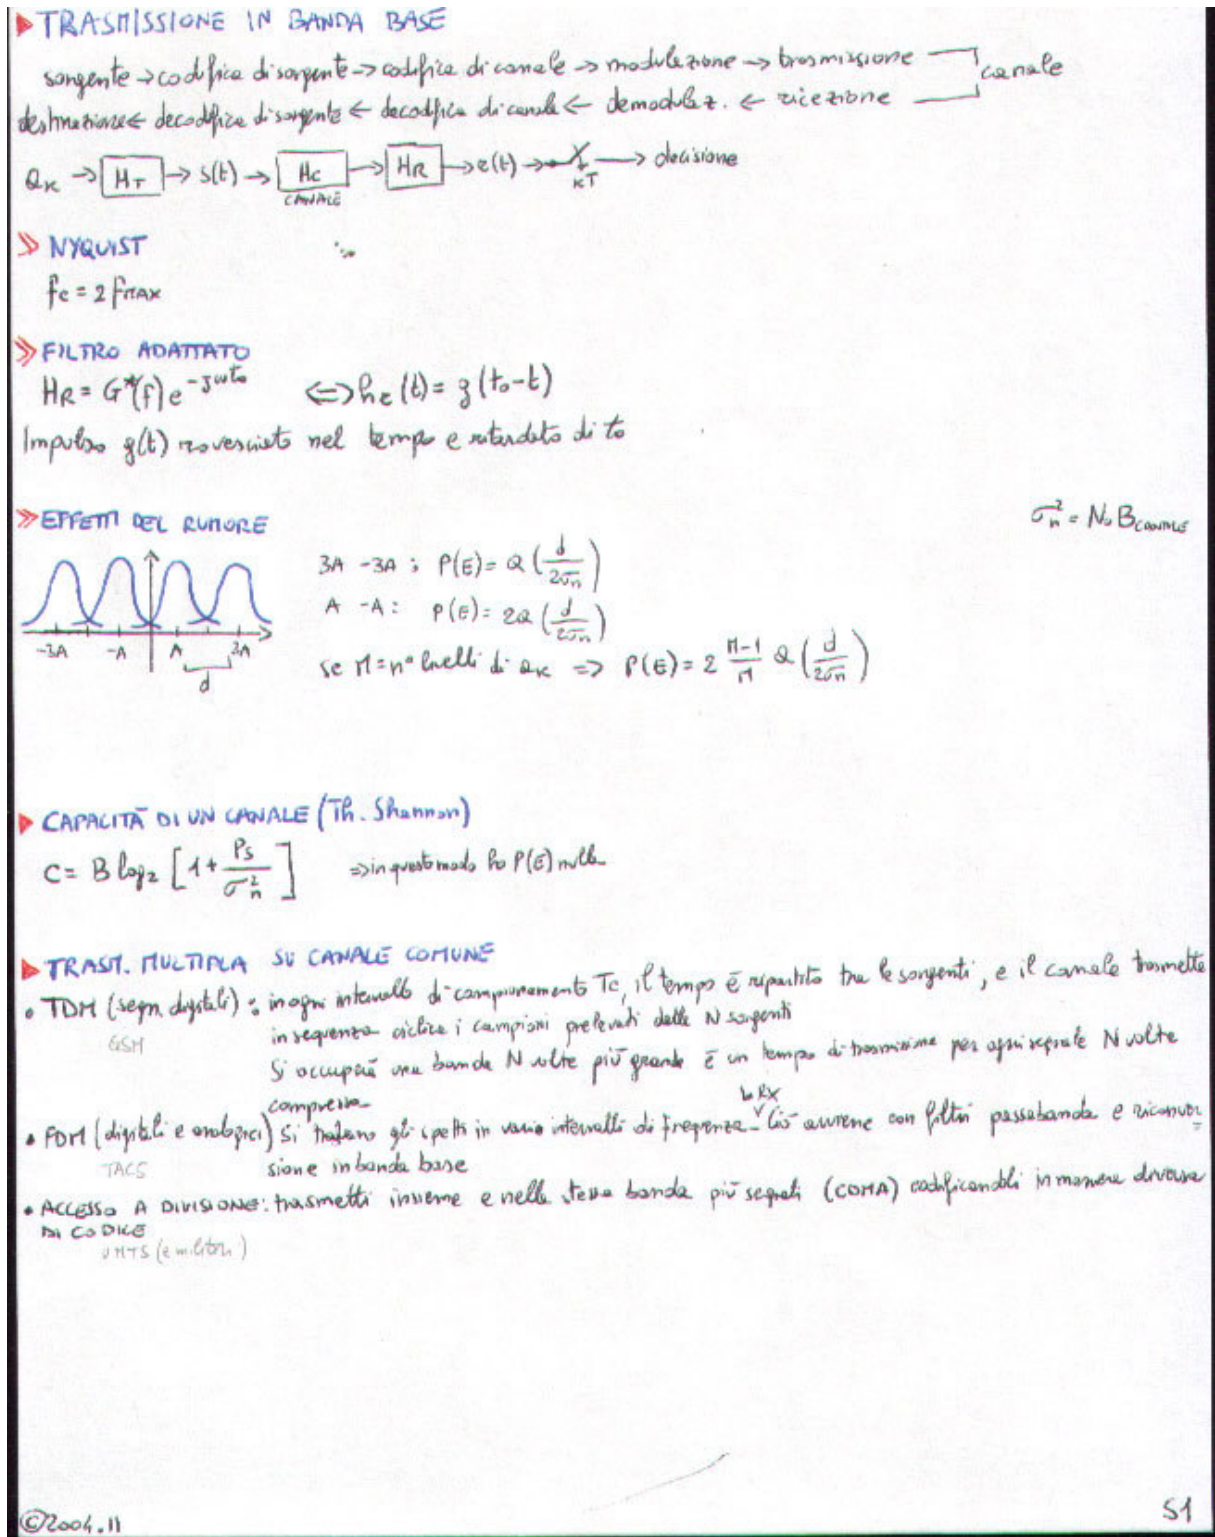 TRASMISSIONE IN BANDA BASE
sorgente → codifica di sorgente → codifica di canale → modulazione → trasmissione
canale
destinazione ← decodifica di sorgente ← decodifica di canale ← demodulaz. ← ricezione
aK → HT → s(t) → HC → HR → r(t) → kT → decisione
CANALE
NYQUIST
fc = 2 fMAX
FILTRO ADATTATO
HR = G*(f) e^-jωt0 ⟺ hr(t) = g(t0-t)
Impulso g(t) rovesciato nel tempo e ritardato di t0
EFFETTI DEL RUMORE
σn² = N0 BCANALE
3A -3A : P(E) = Q (d/2σn)
A -A : P(E) = 2Q (d/2σn)
-3A -A A 3A
d
se M = n° livelli di aK ⇒ P(E) = 2 M-1/M Q (d/2σn)
CAPACITÀ DI UN CANALE (Th. Shannon)
C = B log2 [1 + PS/σn²] ⇒ in questo modo ho P(E) nulla
TRASM. MULTIPLA SU CANALE COMUNE
• TDM (segn. digitali) : in ogni intervallo di campionamento Tc, il tempo è ripartito tra le sorgenti, e il canale trasmette
GSM
in sequenza ciclica i campioni prelevati dalle N sorgenti
Si occuperà una banda N volte più grande e un tempo di trasmissione per ogni segnale N volte
compresso
• FDM (digitali e analogici) si traslano gli spettri in vario intervalli di frequenza. Ciò avviene con filtri passabanda e riconver
in RX
TACS
sione in banda base
• ACCESSO A DIVISIONE : trasmetti insieme e nella stessa banda più segnali (CDMA) codificandoli in maniera diversa
DI CODICE
UMTS (e militari)
©2004.11
51